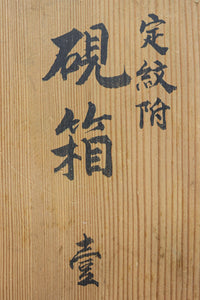 定紋附
硯箱
壹